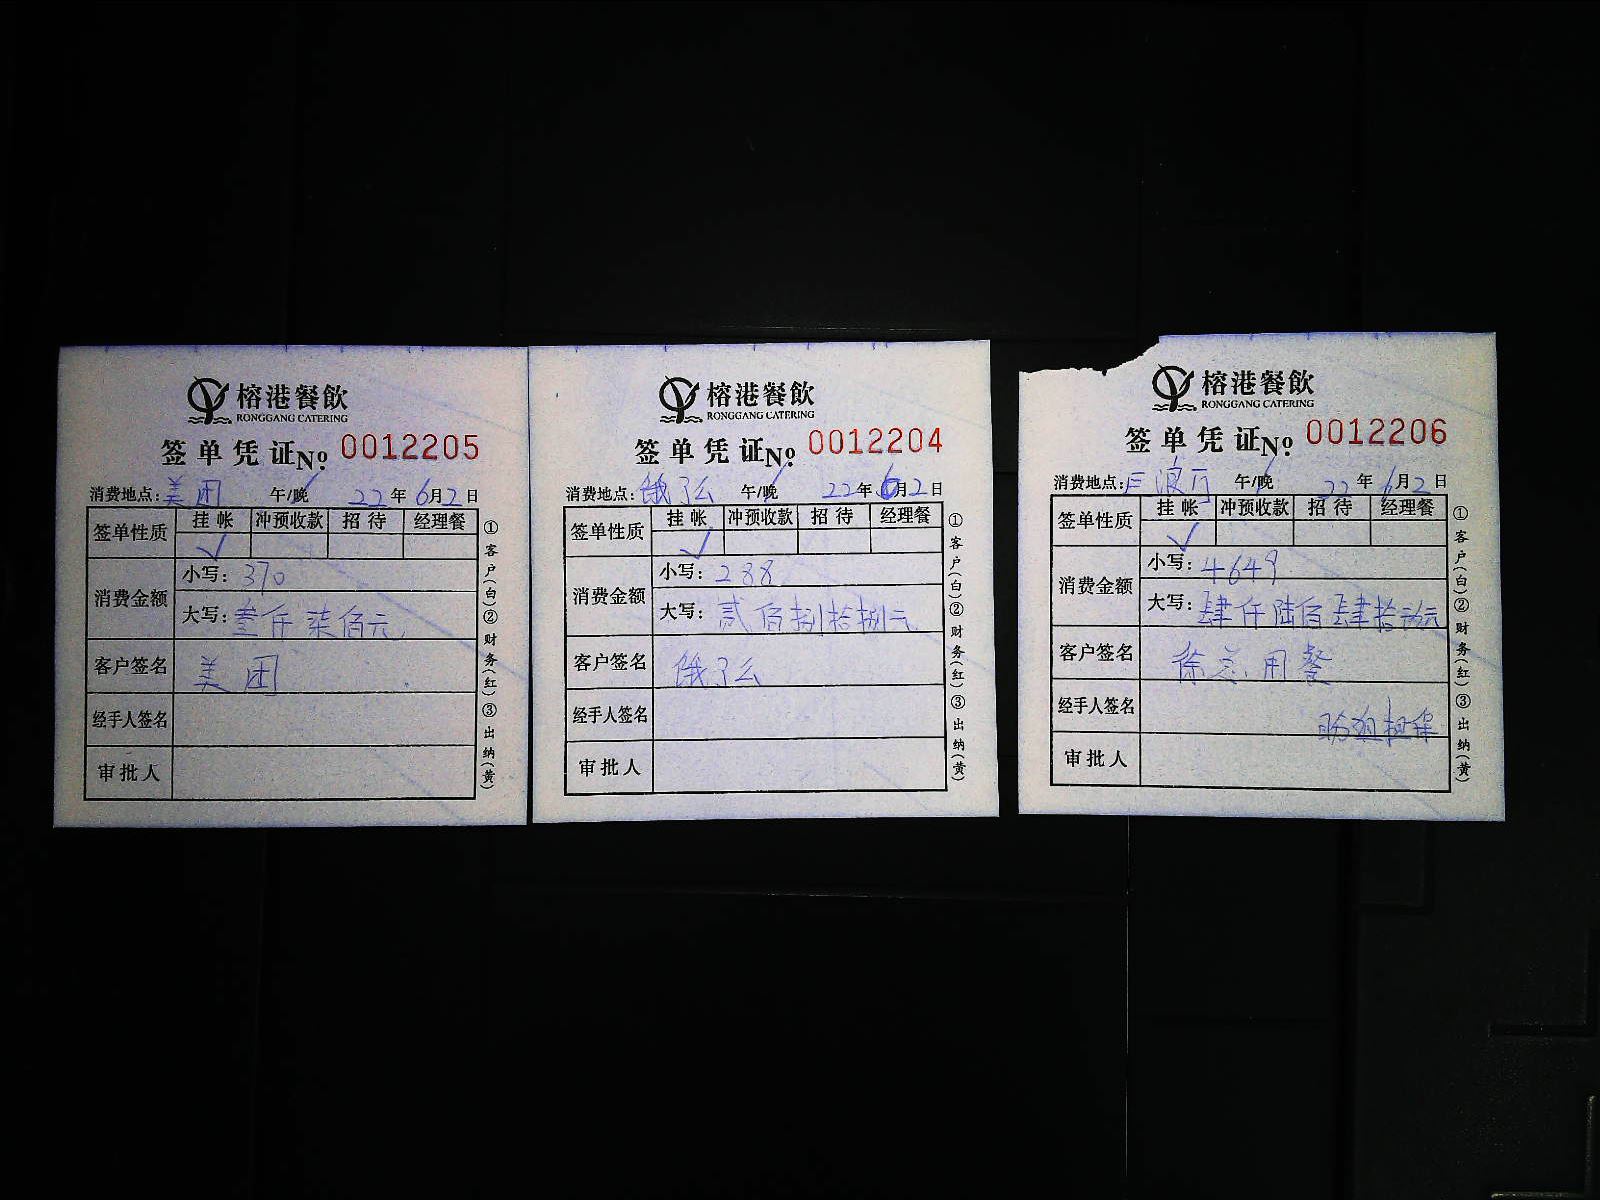 榕港餐飲
RONGGANG CATERING
签单凭证№ 0012205
消费地点：美团 午/晚 22年6月2日
签单性质 挂帐 冲预收款 招待 经理餐
✓
消费金额
小写：370
大写：叁仟柒佰元
客户签名 美团
经手人签名
审批人
①客户(白)②财务(红)③出纳(黄)
榕港餐飲
RONGGANG CATERING
签单凭证№ 0012204
消费地点：饿了么 午/晚 22年6月2日
签单性质 挂帐 冲预收款 招待 经理餐
✓
消费金额
小写：288
大写：贰佰捌拾捌元
客户签名 饿了么
经手人签名
审批人
①客户(白)②财务(红)③出纳(黄)
榕港餐飲
RONGGANG CATERING
签单凭证№ 0012206
消费地点： 午/晚 22年6月2日
签单性质 挂帐 冲预收款 招待 经理餐
✓
消费金额
小写：4649
大写：肆仟陆佰肆拾玖元
客户签名 徐总用餐
经手人签名 担保
审批人
①客户(白)②财务(红)③出纳(黄)